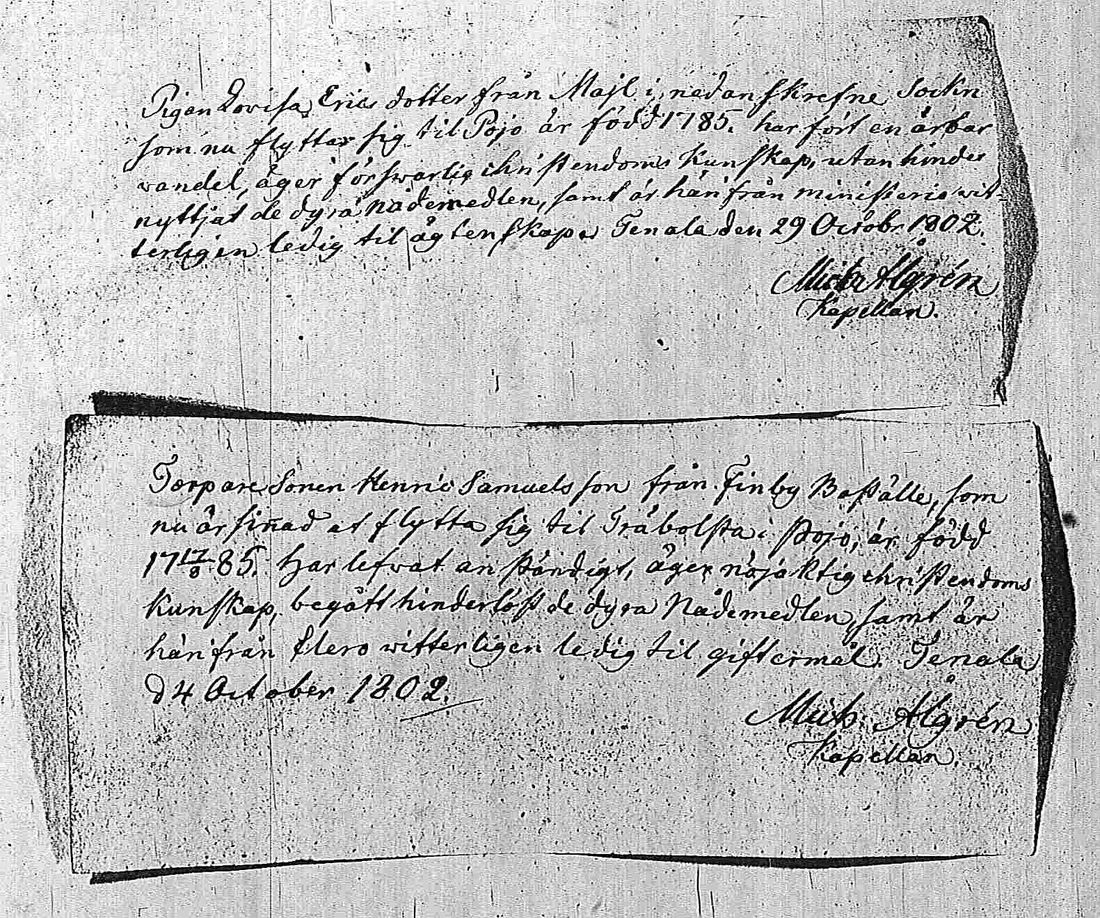 Pigan Lovisa Ericsdotter från Majl i nedanskrefne Sockn
som nu flyttar sig til Pojo är född 1785. har fört en ärbar
vandel, äger förswarlig christendoms kunskap, utan hinder
nyttjat de dyra nådemedlen, samt är härifrån ministerio wit-
terligen ledig til ägtenskap. Tenala den 29 Octobr. 1802.
Mich Ålgrén
Kapellan.
Torpare Sonen Henric Samuelsson från Finby Boställe, som
nu är sinad at flytta sig til Gräbolsta i Pojo, är född
17 17/8 85. Har lefwat anständigt, äger nöjaktig christendoms
kunskap, begått hinderlöst de dyra Nådemedlen, samt är
härifrån Clero witterligen ledig til giftermål. Tenala
d 4 October 1802.
Mich. Ålgrén
Kapellan.